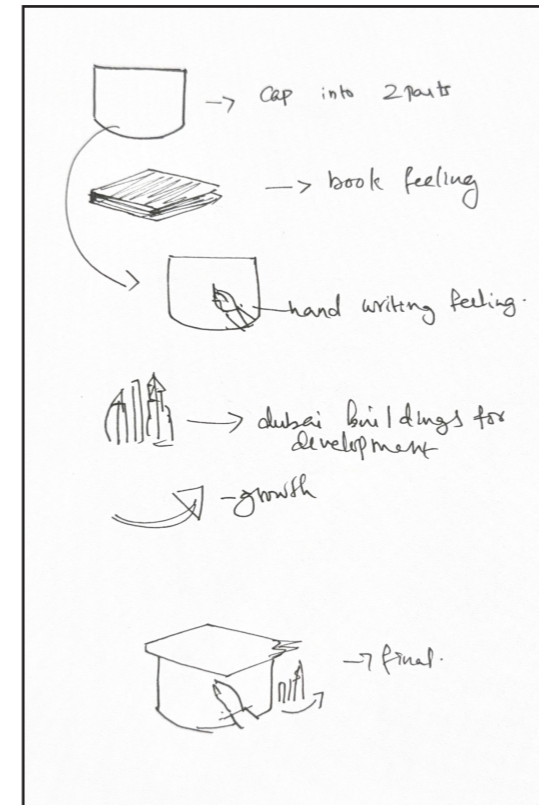 cap into 2 parts
book feeling
hand writing feeling.
dubai buildings for
development
-growth
final.